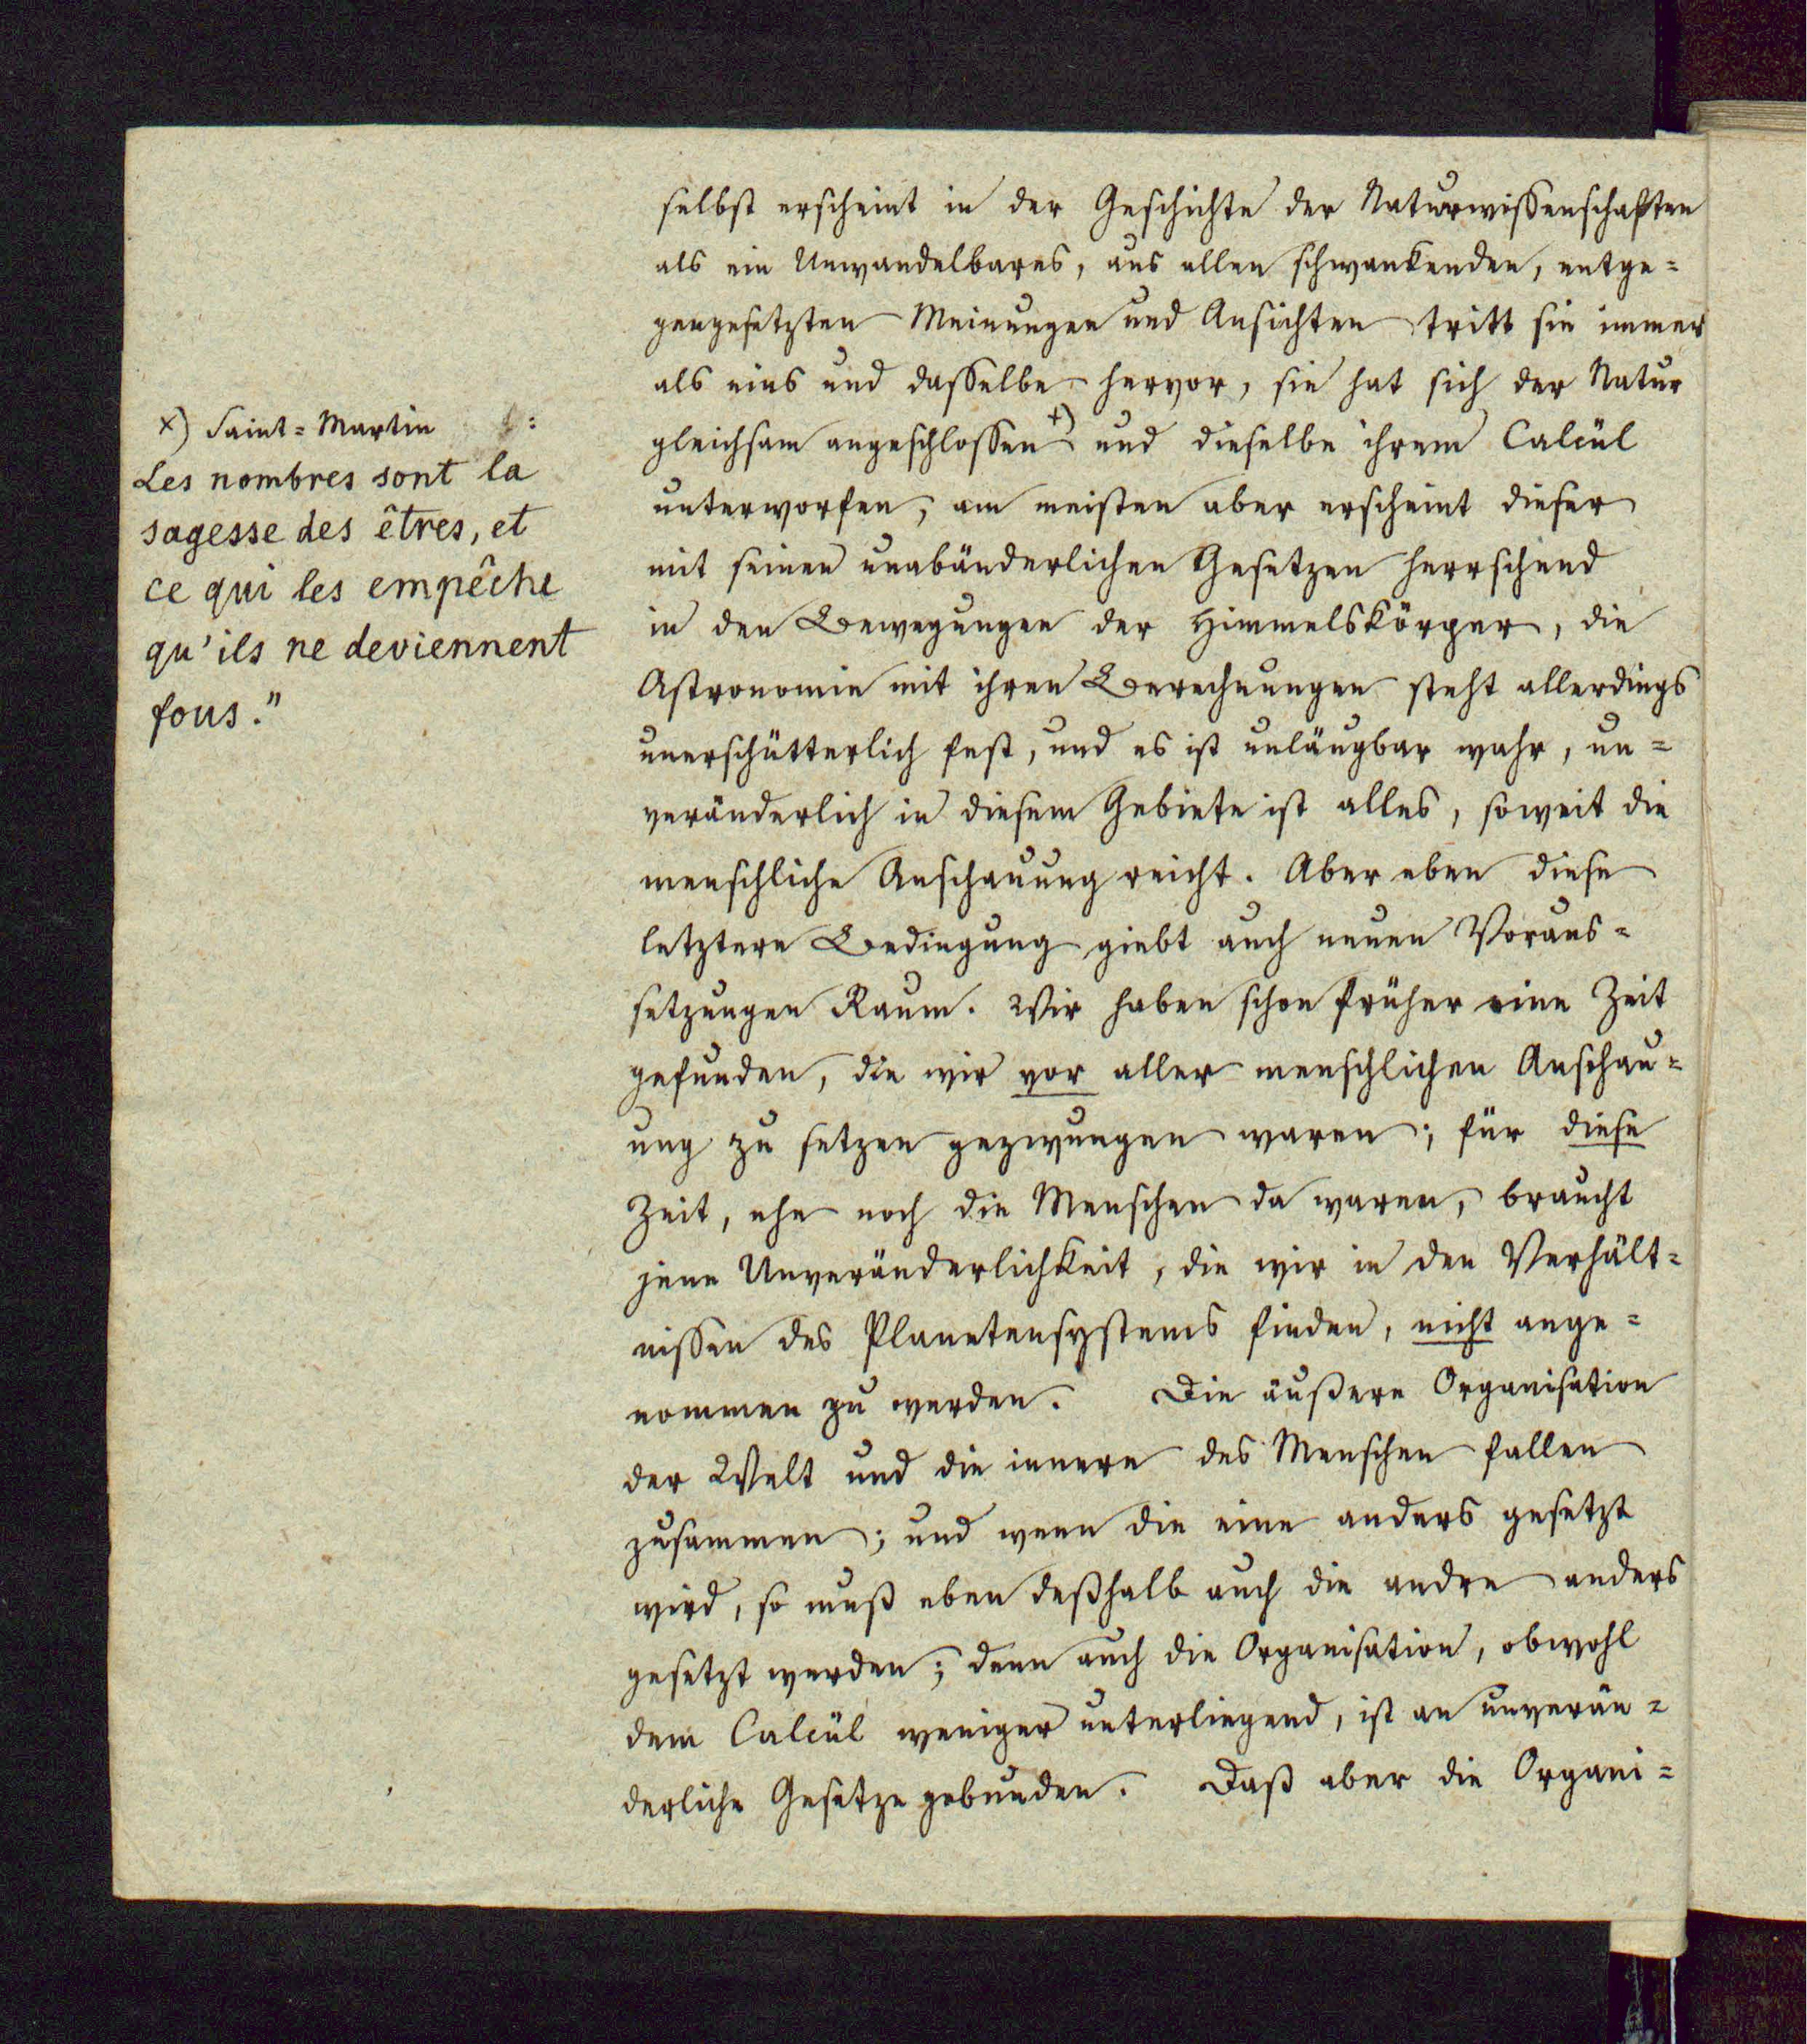 selbst erscheint in der Geschichte der Naturwissenschaften
als ein Unwandelbares, aus allen schwankenden, entge=
gengesetzten Meinungen und Ansichten tritt sie immer
als eins und dasselbe hervor, sie hat sich der Natur
gleichsam angeschlossen +) und dieselbe ihrem Calcül
unterworfen; am meisten aber erscheint dieser
mit seinen unabänderlichen Gesetzen herrschend
in den Bewegungen der Himmelskörper, die
Astronomie mit ihren Berechnungen steht allerdings
unerschütterlich fest, und es ist unläugbar wahr, un=
veränderlich in diesem Gebiete ist alles, soweit die
menschliche Anschauung reicht. Aber eben diese
letztere Bedingung giebt auch neuen Voraus=
setzungen Raum. Wir haben schon früher eine Zeit
gefunden, die wir vor aller menschlichen Anschau=
ung zu setzen gezwungen waren; für diese
Zeit, ehe noch die Menschen da waren, braucht
jene Unveränderlichkeit, die wir in den Verhält=
nissen des Planetensystems finden, nicht ange=
nommen zu werden. Die äußere Organisation
der Welt und die innere des Menschen fallen
zusammen; und wenn die eine anders gesetzt
wird, so muß eben deßhalb auch die andre anders
gesetzt werden; denn auch die Organisation, obwohl
dem Calcül weniger unterliegend, ist an unverän=
derliche Gesetze gebunden. Daß aber die Organi=
x) Saint=Martin :
Les nombres sont la
sagesse des êtres, et
ce qui les empêche
qu'ils ne deviennent
fous."